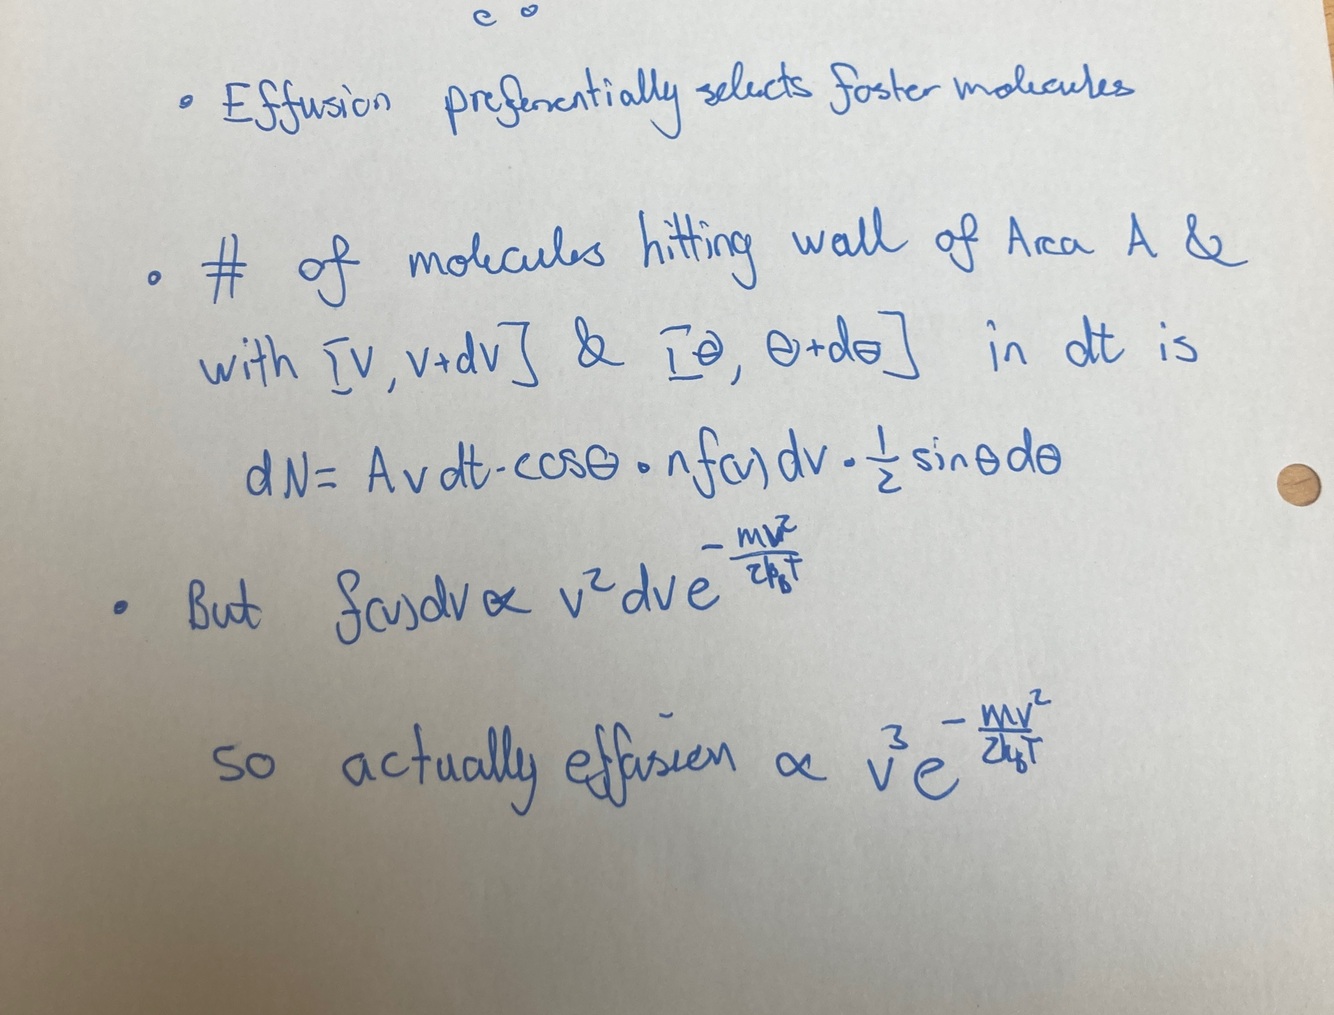 • Effusion preferentially selects faster molecules
• # of molecules hitting wall of Area A &
with [v, v+dv] & [θ, θ+dθ] in dt is
dN = A v dt · cosθ · n f(v) dv · 1/2 sinθ dθ
• But f(v)dv ∝ v² dv e^(-mv²/2k_BT)
so actually effusion ∝ v³ e^(-mv²/2k_BT)